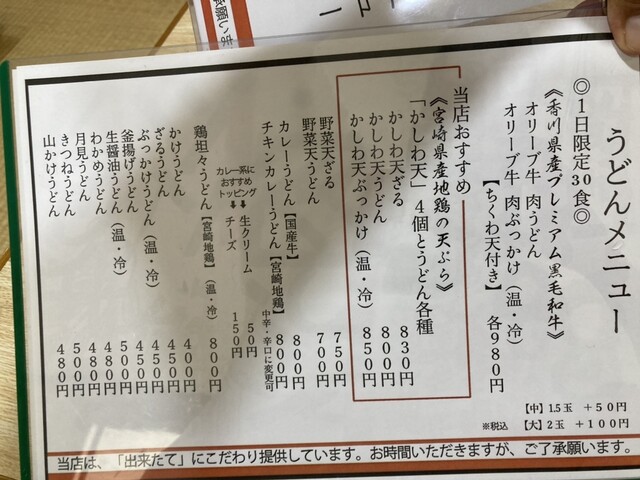 承願いま
うどんメニュー
◎1日限定30食◎
《香川県産プレミアム黒毛和牛》
オリーブ牛 肉うどん
オリーブ牛 肉ぶっかけ（温・冷）
【ちくわ天付き】 各980円
当店おすすめ
《宮崎県産地鶏の天ぷら》
「かしわ天」4個とうどん各種
かしわ天ざる 830円
かしわ天うどん 800円
かしわ天ぶっかけ（温・冷） 850円
野菜天ざる 750円
野菜天うどん 700円
カレーうどん【国産牛】 800円
チキンカレーうどん【宮崎地鶏】 800円
中辛・辛口に変更可
カレー系に
おすすめ
トッピング
➡生クリーム 50円
➡チーズ 150円
鶏坦々うどん【宮崎地鶏】（温・冷） 800円
かけうどん 400円
ざるうどん 450円
ぶっかけうどん（温・冷） 450円
釜揚げうどん 500円
生醤油うどん（温・冷）
わかめうどん 480円
月見うどん 480円
きつねうどん 500円
山かけうどん 480円
【中】1.5玉 +50円
※税込 【大】2玉 +100円
当店は、「出来たて」にこだわり提供しています。お時間いただきますが、ご了承願います。